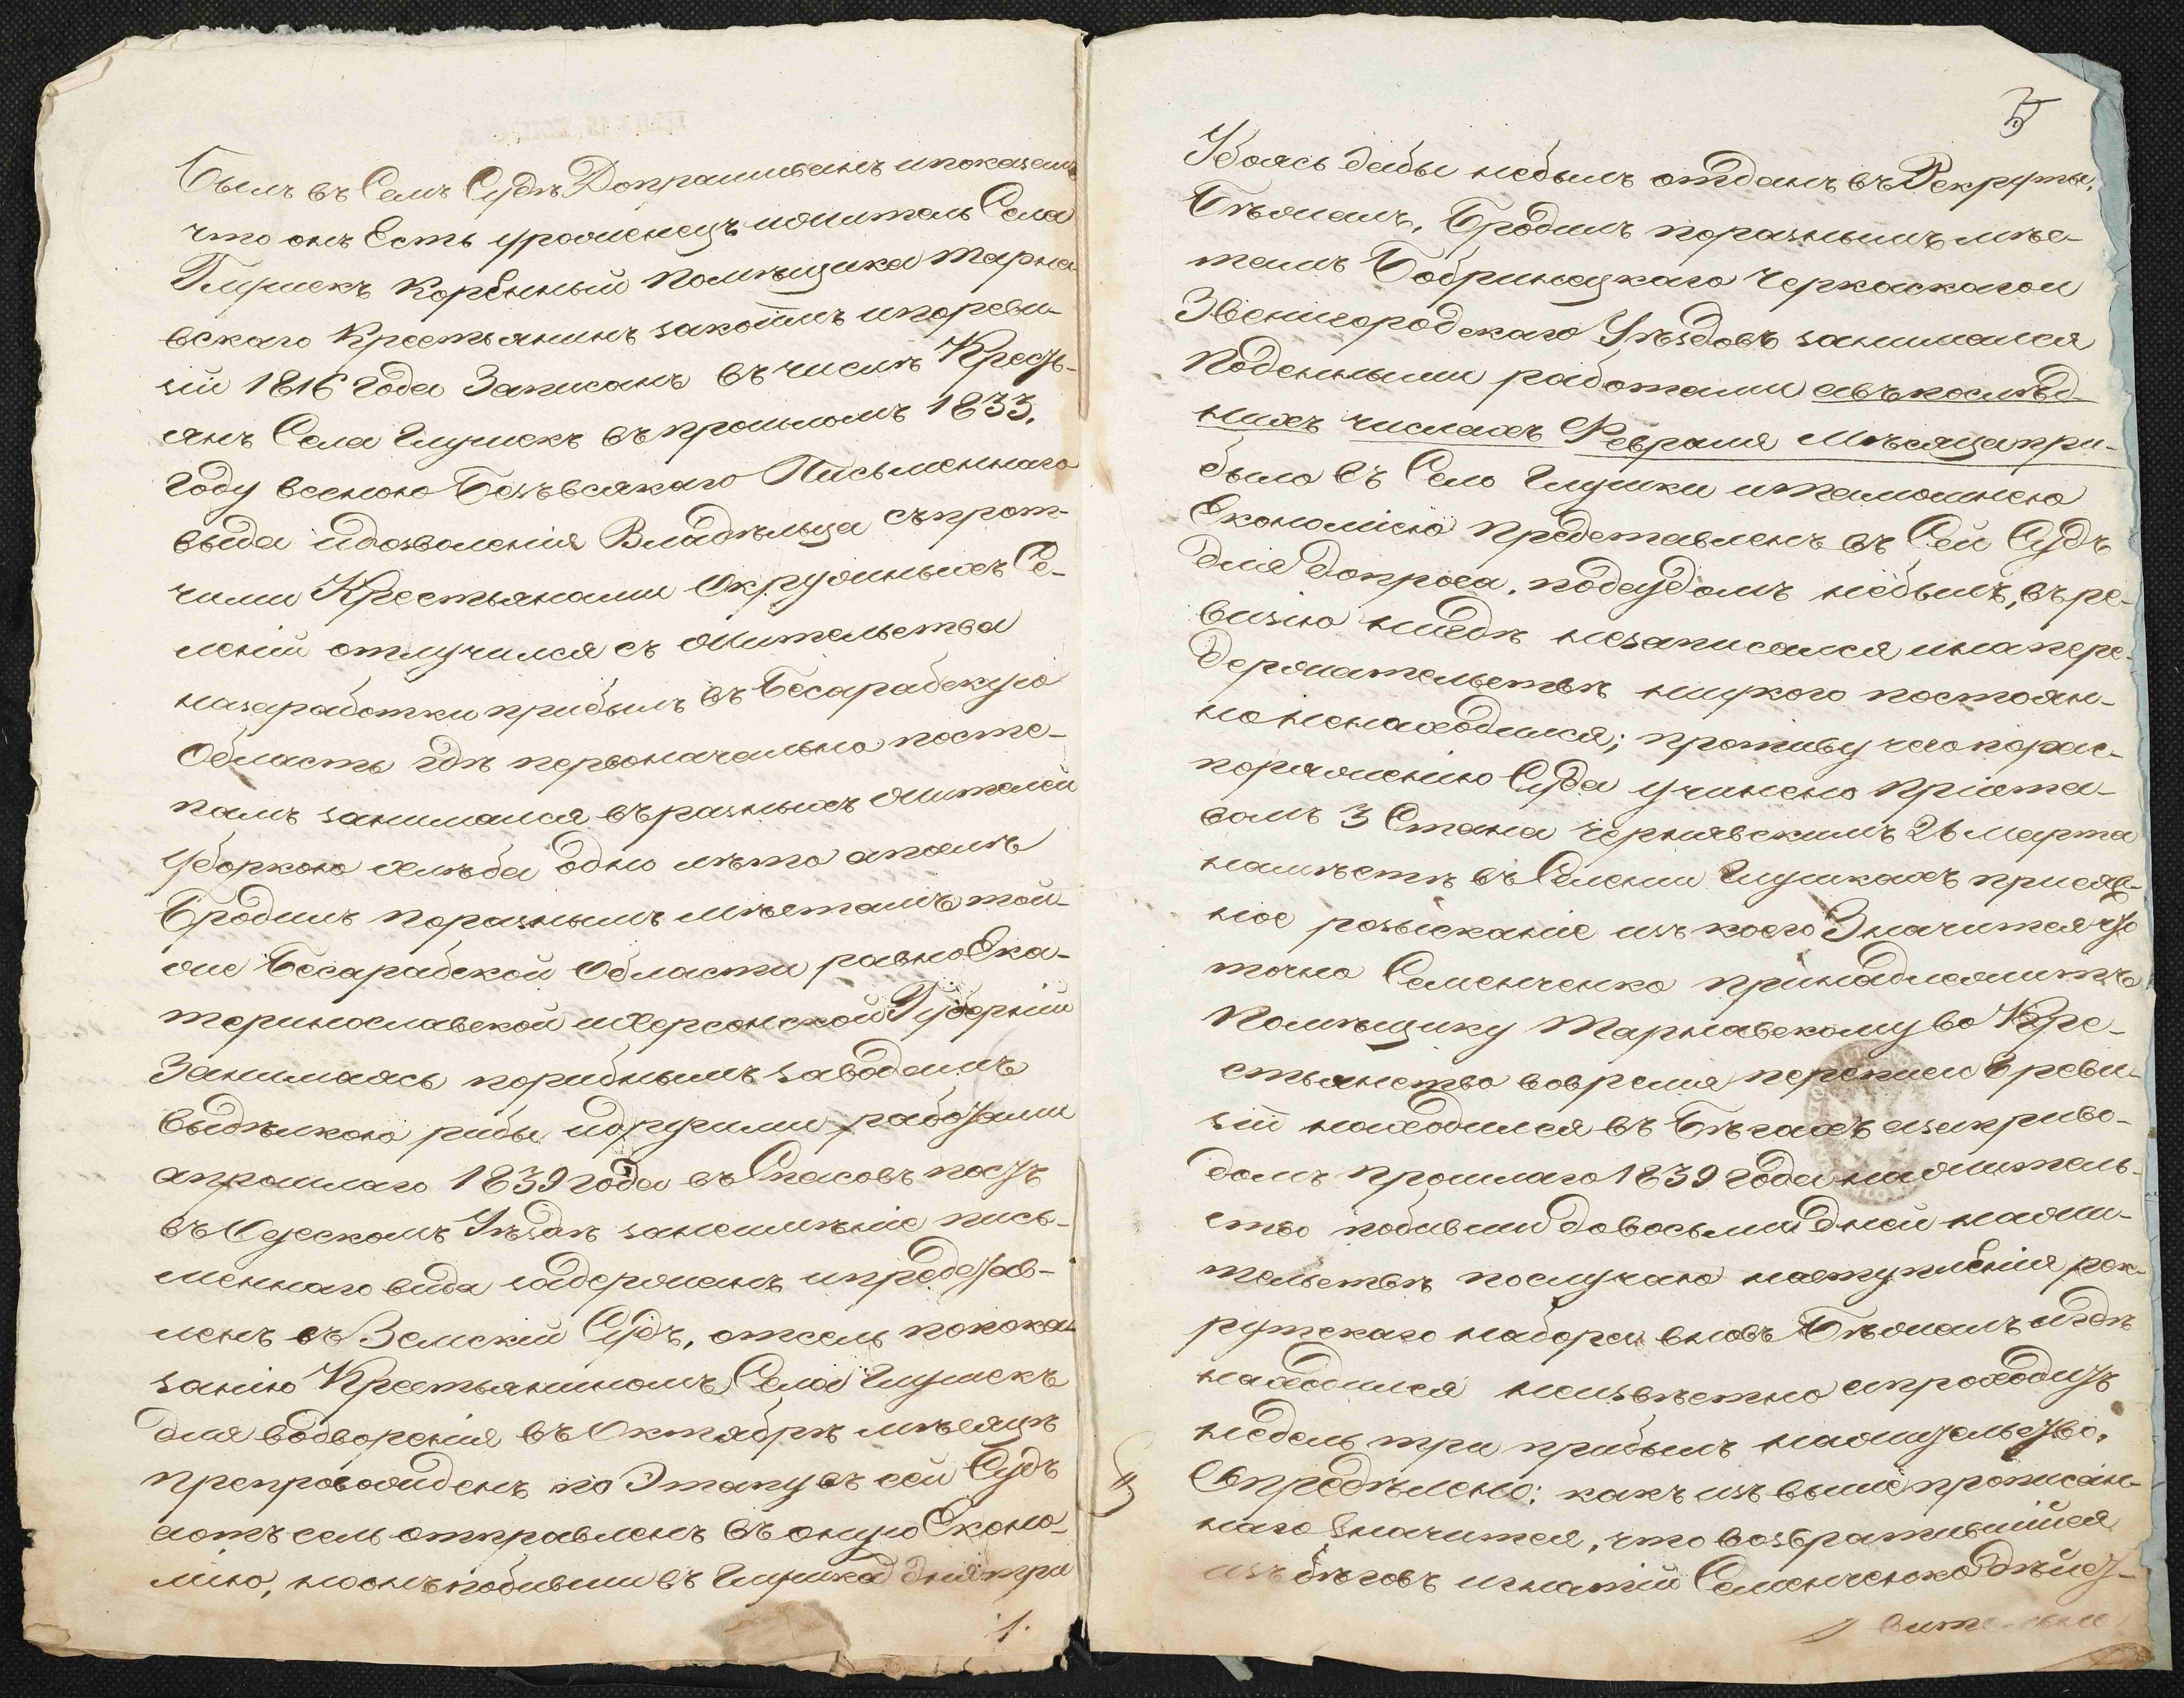 Былъ въ Семъ Судѣ Допрашиванъ ипоказалъ
что онъ Есть уроженецъ ижитель Села
Глушекъ Коренный помѣщика Тарна-
вскаго Крестьянинъ закоимъ ипореви-
зіи 1816 года Записанъ въ числѣ Кресть-
янъ Села Глушекъ въпрошломъ 1833.
Году весною Безъвсякаго Письменнаго
выда идозволенія Владѣльца съпрот-
чими Крестьянами Окружныхъ Се-
леній отлучился съ жительства
назаработки прибылъ въ Бесарабскую
Область гдѣ первоначально посте-
памъ занимался въразныхъ жителей
уборкою хлѣба одно лѣто апотомъ
Бродилъ поразнымъ мѣстамъ той-
же Бесарабской Области равно Ека-
теринославской иХерсонской Губерній
Занимаясь порибнымъ заводамъ
выдѣлкою рибы идругими работами
апрошлаго 1839 года въ Спасовъ постъ
въ Одеском Уѣздѣ занеимѣніе пись-
меннаго вида задержанъ ипредстав-
ленъ въ Земскій Судъ, отсель попока-
занію Крестьяниномъ Села Глушекъ
для водворенія въ Октябрѣ мѣсяцѣ
препровожденъ по Этапу въ сей Судъ
аотъсель отправленъ въ оную Еконо-
мію, ноонъ побивши въ Глушка дня три
1.
5
Убоясь дабы небылъ отданъ въ Рекруты,
Бѣжалъ, Бродилъ поразнымъ мѣс-
тамъ Бобринецкаго Черкаскагои
Звенигородскаго Уѣздовъ занимался
поденными работами авъпослѣд-
нихъ числахъ Февраля Мѣсяца при-
было въ Село Глушки итамошнею
Економіею представленъ въ Сей Судъ
для допроса. подсудомъ небылъ, върe-
визію нигдѣ незаписался инапере-
держательствѣ ниукого постоян-
но ненаходился; противу чего порас-
поряженію Суда учинено приста-
вомъ 3 Стана Чернявскимъ 26 Марта
намѣстѣ въ Селеніи Глушкахъ присяж-
ное розысканіе изъ коего Значится что
точно Семенченко принадлежитъ
Помѣщику Тарнавскому во Кре-
стьянство вовремя переписи 8 реви-
зіи находился въ Бѣгахъ азаприво-
домъ прошлаго 1839 года нажитель-
ство побивши довосьми дней нажи-
тельствѣ послучаю наступленія рек-
рутскаго набора вновь Бѣжалъ игдѣ
находился неизвѣстно спроходитъ
недель три прибылъ нажительство.
Опредѣлено: какъ изъ выше прописан-
наго Значится, что возвратившійся
изъ бѣговъ игнатій Семенченко дѣйст-
вительно